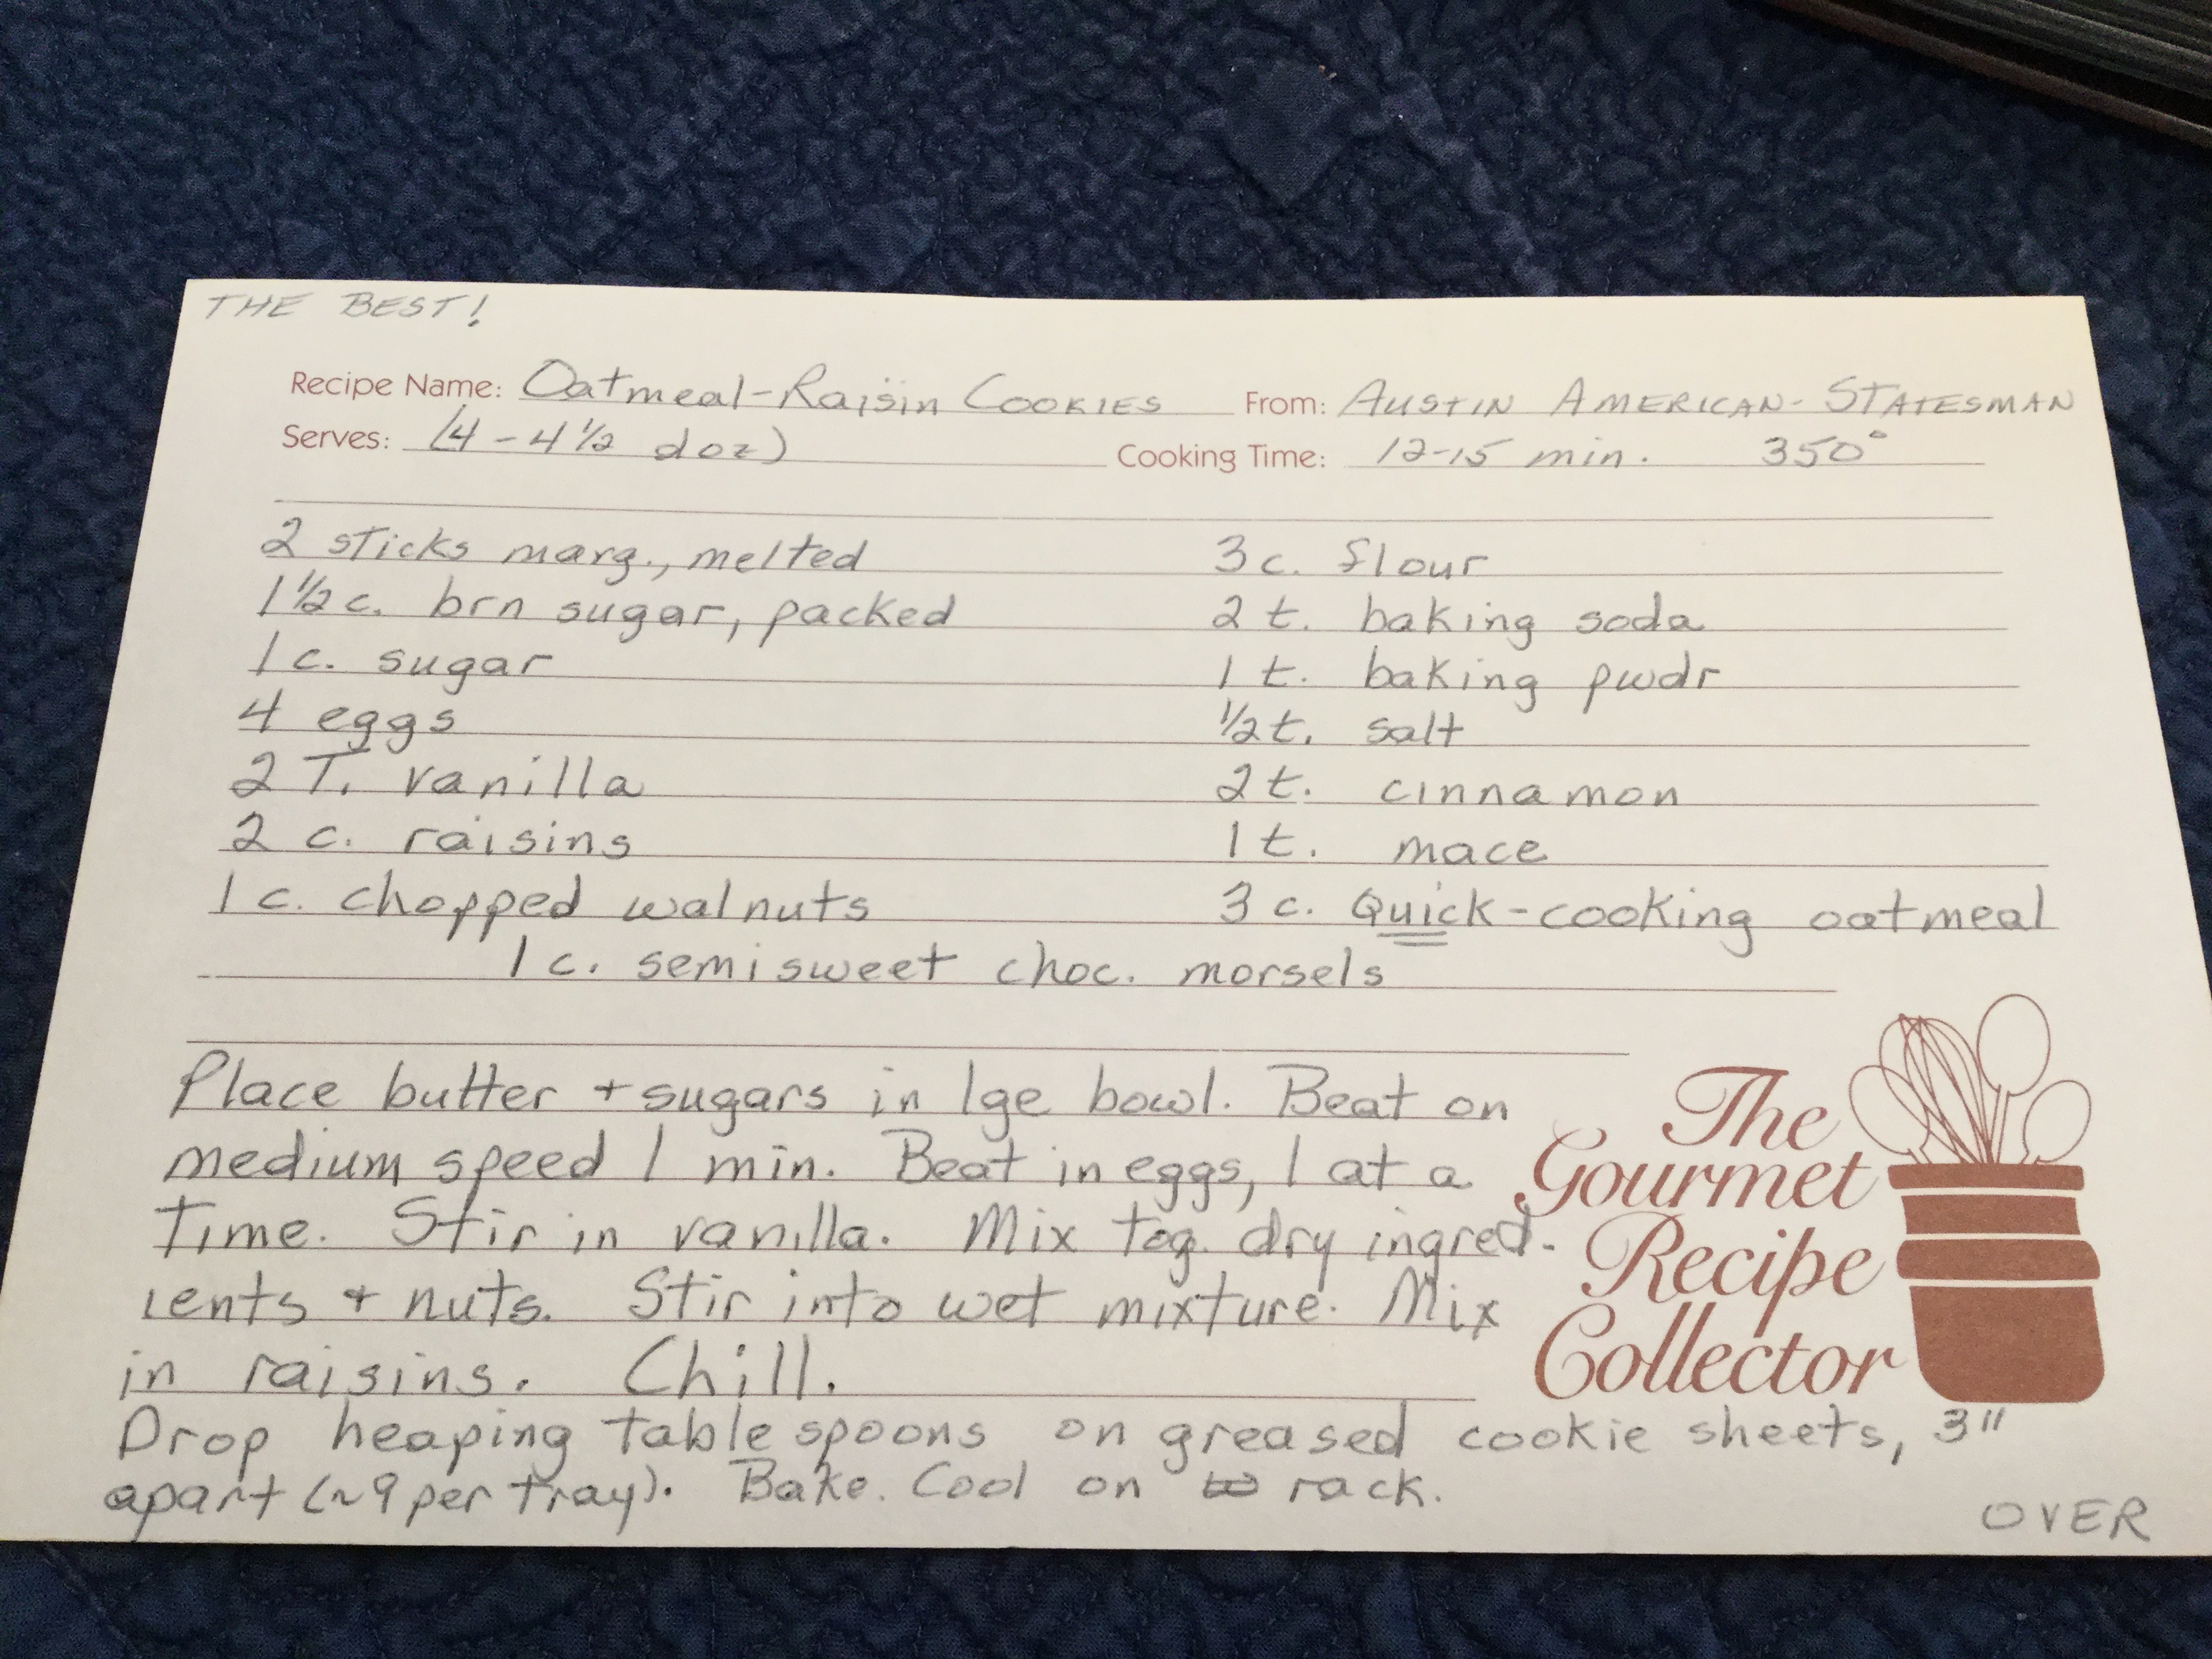 THE BEST!
Recipe Name: Oatmeal-Raisin Cookies From: Austin American-Statesman
Serves: (4-4 1/2 doz) Cooking Time: 12-15 min. 350°
2 sticks marg., melted 3 c. flour
1 1/2 c. brn sugar, packed 2 t. baking soda
1 c. sugar 1 t. baking pwdr
4 eggs 1/2 t. salt
2 T. vanilla 2 t. cinnamon
2 c. raisins 1 t. mace
1 c. chopped walnuts 3 c. Quick-cooking oatmeal
1 c. semisweet choc. morsels
Place butter + sugars in lge bowl. Beat on
medium speed 1 min. Beat in eggs, 1 at a
Time. Stir in vanilla. Mix tog. dry ingred-
ients + nuts. Stir into wet mixture. Mix
in raisins. Chill.
Drop heaping tablespoons on greased cookie sheets, 3"
apart (~9 per tray). Bake. Cool on rack.
OVER
The
Gourmet
Recipe
Collector